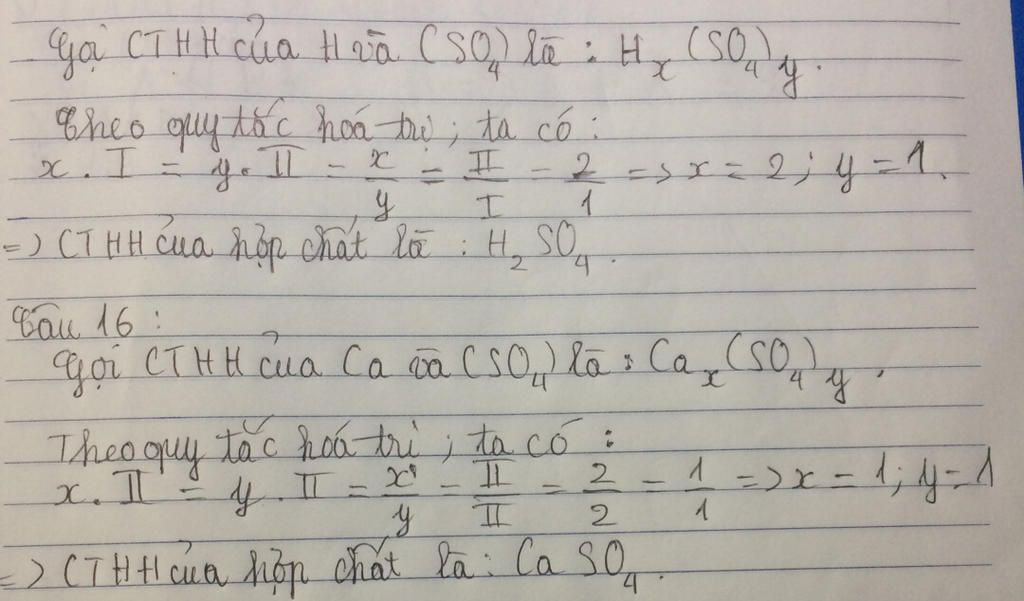 Gọi CTHH của H và (SO₄) là : Hₓ(SO₄)y.
Theo quy tắc hoá trị ; ta có :
x . I = y . II = x/y = II/I = 2/1 => x = 2 ; y = 1.
=> CTHH của hợp chất là : H₂SO₄.
Câu 16 :
Gọi CTHH của Ca và (SO₄) là : Caₓ(SO₄)y.
Theo quy tắc hoá trị ; ta có :
x . II = y . II = x/y = II/II = 2/2 = 1/1 => x = 1 ; y = 1
=> CTHH của hợp chất là : CaSO₄.